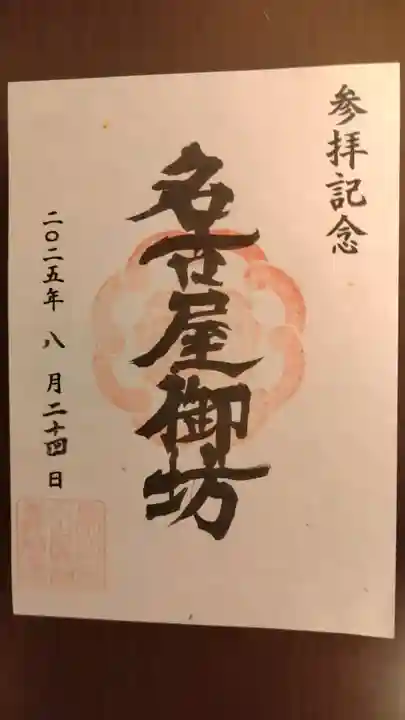 参拝記念
名古屋御坊
二〇二五年 八 月二十四日